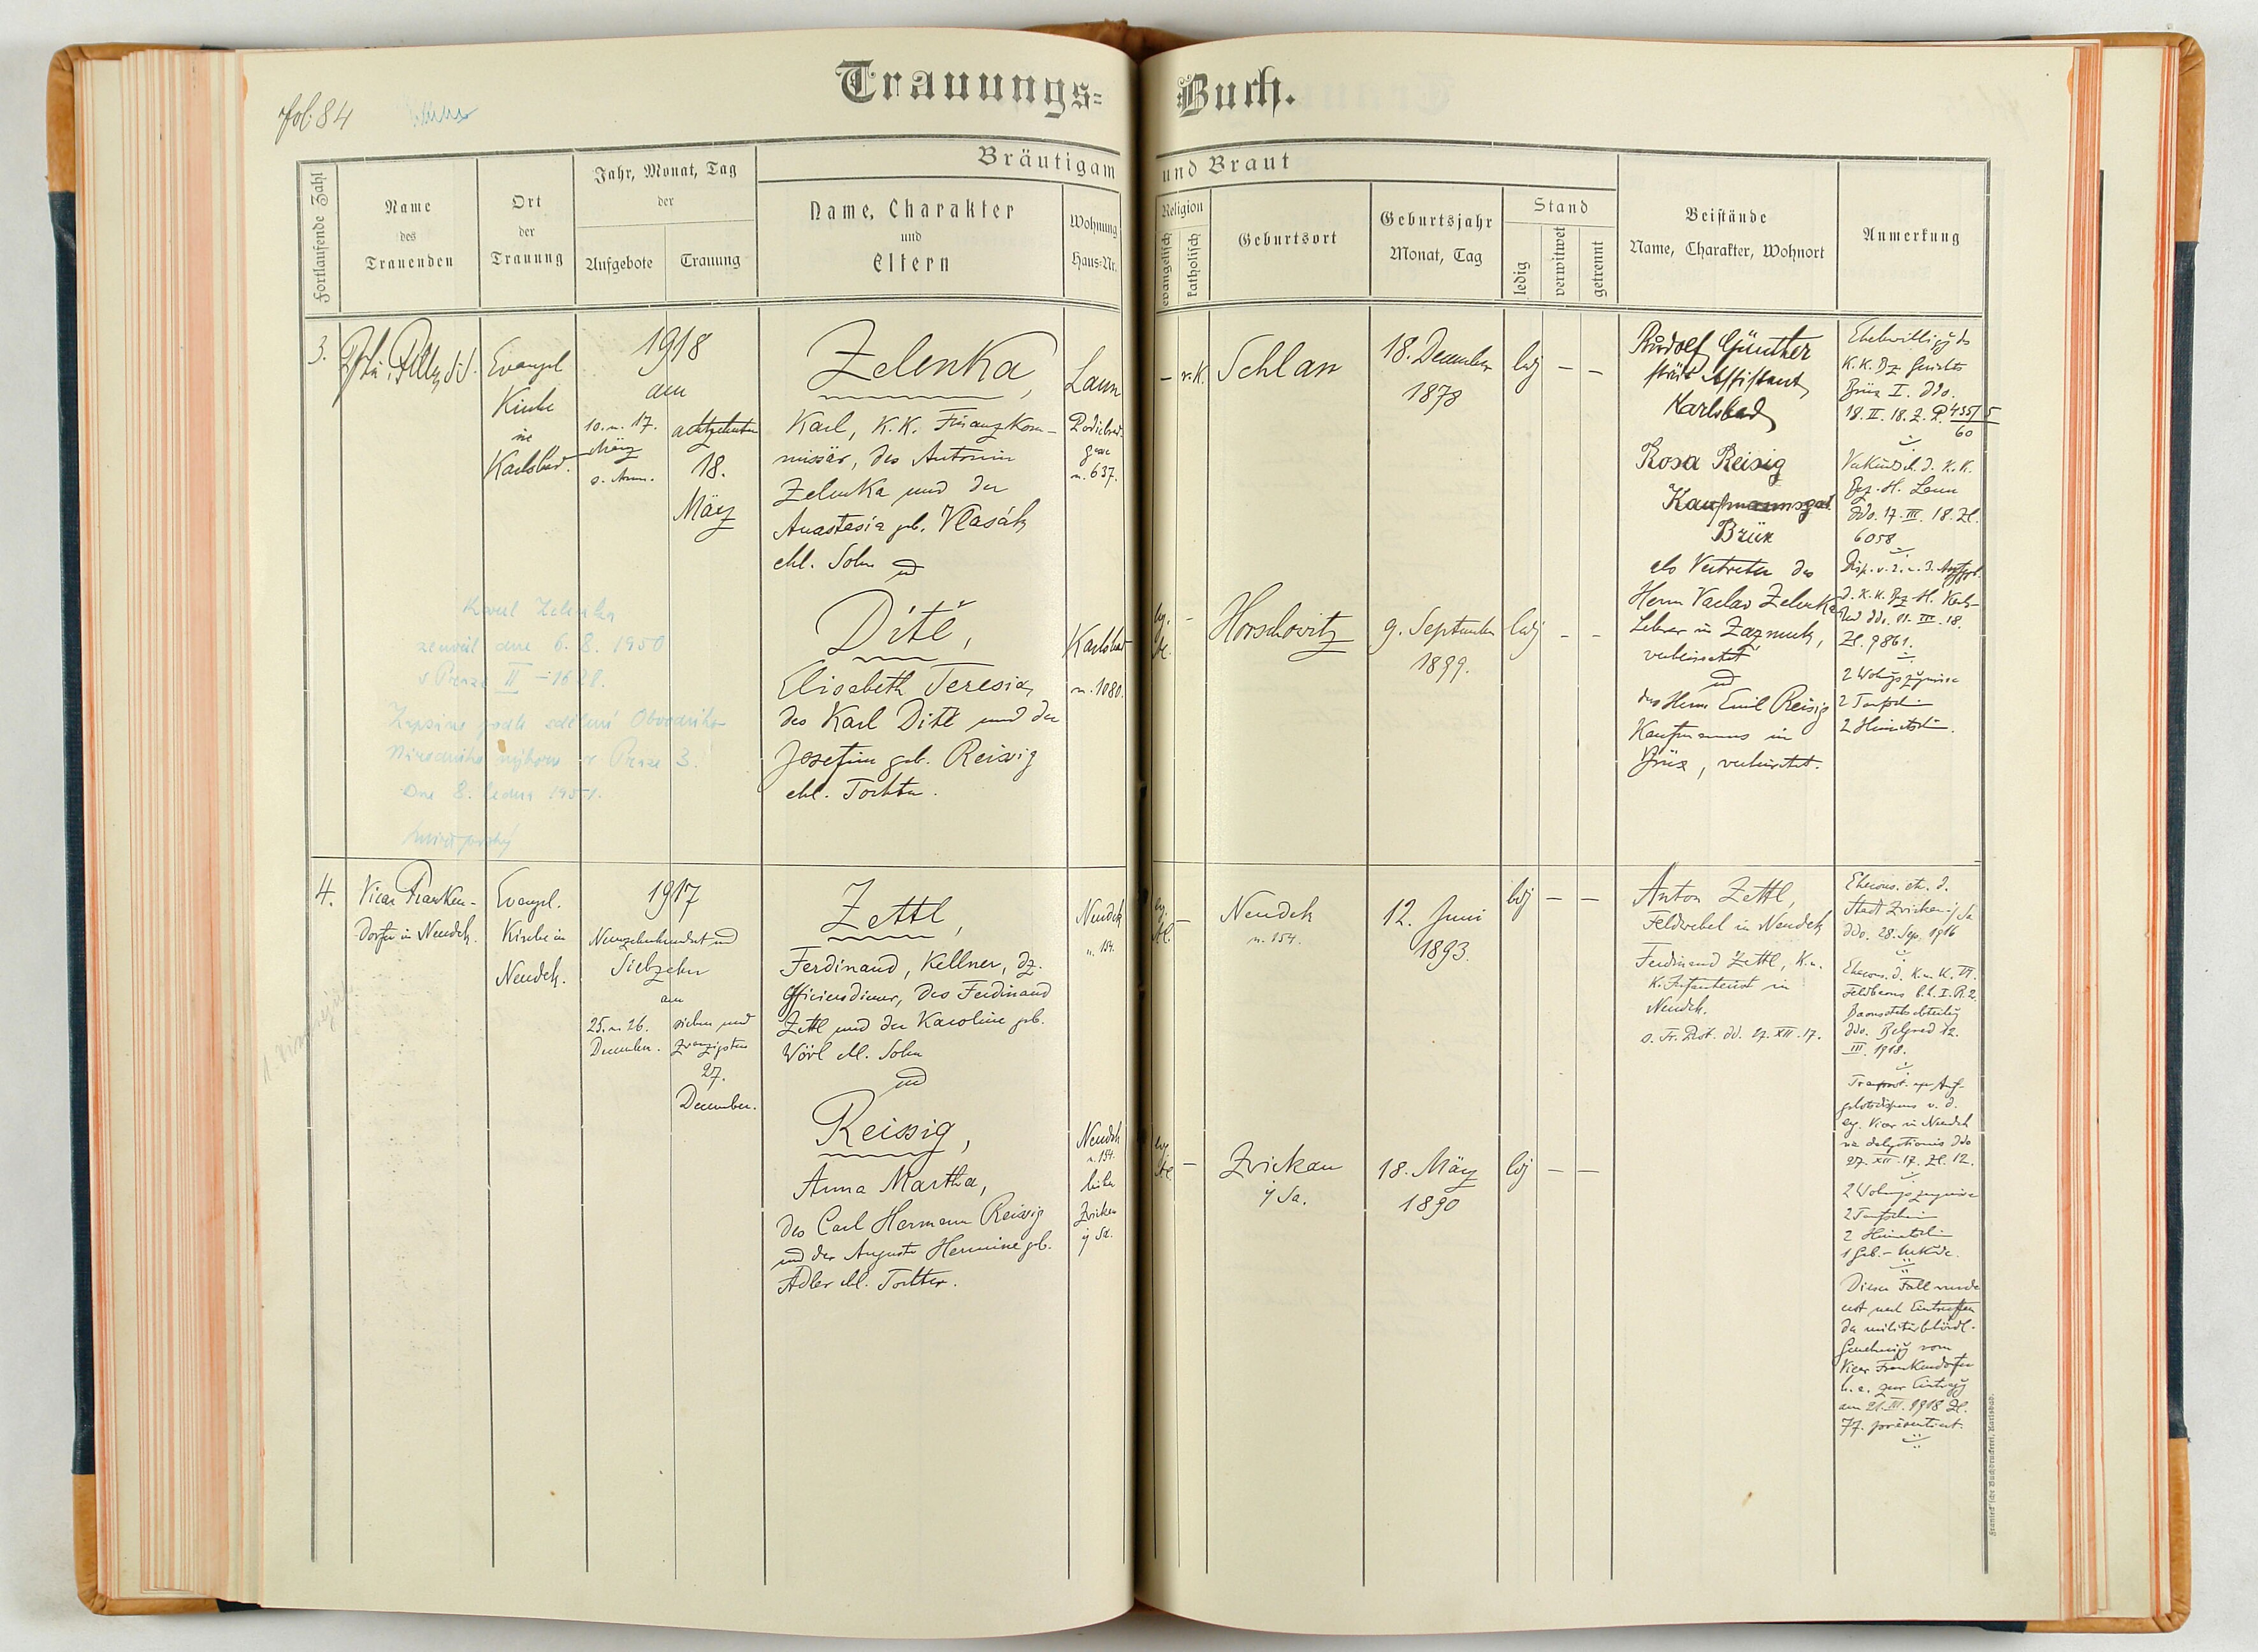 fol. 84
Trauungs-Buch.
Fortlaufende Zahl
Name
des
Trauenden
Ort
der
Trauung
Jahr, Monat, Tag
der
Aufgebote
Trauung
Bräutigam und Braut
Name, Charakter
und
Eltern
Wohnung
Haus-Nr.
Religion
evangelisch
katholisch
Geburtsort
Geburtsjahr
Monat, Tag
Stand
ledig
verwitwet
getrennt
Beistände
Name, Charakter, Wohnort
Anmerkung
3.
Evangel
Kirche
in
Karlsbad.
1918
am
10. u. 17.
März
s. Anm.
achtzehnten
18.
März
Zelenka,
Karl, K.K. Finanzkom-
missär, des Antonin
Zelenka und der
Anastasia geb. Vlasák
ehl. Sohn
und
Ditě,
Elisabeth Teresia,
des Karl Ditě und der
Josefine geb. Reissig
ehl. Tochter.
Laun
n. 637.
Karlsbad
n. 1080.
– r.k.
Schlan
18. December
1878
ledig – –
–
Horschovitz
9. September
1899.
ledig – –
Rudolf Günther
Assistent
Karlsbad
Rosa Reisig
Kaufmannsgat.
Brüx
als Vertreter des
Herrn Vaclav Zelenka
Lehrer in Zazmuk,
verheiratet
und
des Herrn Emil Reisig
Kaufmanns in
Brüx, verheiratet.
K.K. Bz. Gerichts
Brüx I. ddo.
18. II. 18. Z. P. 455/5
60
d. K.K.
Bez. H. Laun
ddo. 17. III. 18. Zl.
6058
Disp. v. 2. u. 3. Aufgeb.
d. K.K. Bz. H. Karls-
bad ddo. 11. III. 18.
Zl. 9861.
2 Wohngszeugnisse
2 Taufschein
2 Heimatschein.
Karel Zelenka
zemřel dne 6. 8. 1950
v Praze II – 1628.
Zapsáno podle sdělení Obvodního
Národního výboru v Praze 3.
Dne 8. ledna 1951.
4.
Vicar Franken-
dorfer in Neudek.
Evangel.
Kirche in
Neudek.
1917
Neunzehnhundert und
Siebzehn
am
25. u. 26.
December.
sieben und
zwanzigsten
27.
December.
Zettl,
Ferdinand, Kellner, dz.
Officiersdiener, des Ferdinand
Zettl und der Karoline geb.
Wörl ehl. Sohn
und
Reissig,
Anna Martha,
des Carl Hermann Reissig
und der Auguste Hermine geb.
Adler ehl. Tochter.
Neudek
n. 154.
Neudek
n. 154.
bisher
Zwickau
i/ Sa.
–
Neudek
n. 154.
12. Juni
1893.
ledig – –
–
Zwickau
i/ Sa.
18. März
1890
ledig – –
Anton Zettl,
Feldwebel in Neudek
Ferdinand Zettl, K.u.
K. Infanterist in
Neudek.
s. Tr. Prot. dd. 27. XII. 17.
Ehecons. etc. d.
Stadt Zwickau i/ Sa
ddo. 28. Sep. 1916
Ehecons. d. K.u.K. VI.
ddo. Belgrad 12.
III. 1918.
gebotsdispens v. d.
ev. Vicar in Neudek
via delegationis ddo
27. XII. 17. Zl. 12.
2 Wohngszeugnisse
2 Taufschein
2 Heimatschein
1 Geb.-Urkde.
Dieser Fall wurde
erst nach Eintreffen
der militärbehördl.
Genehmigg vom
Vicar Frankendorfer
h.a. zur Eintragg
am 21. III. 1918 Zl.
77. präsentiert.
Franieck'sche Buchdruckerei, Karlsbad.